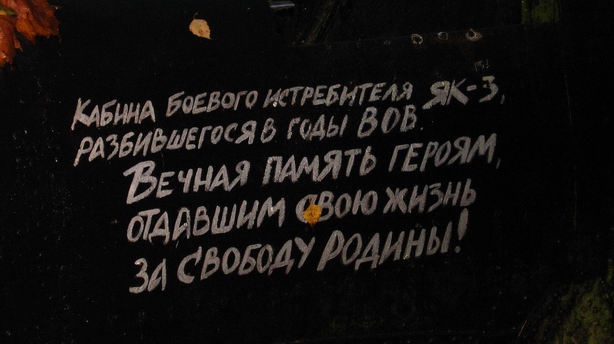 Кабина боевого истребителя ЯК-3,
разбившегося в годы ВОВ.
Вечная память героям,
отдавшим свою жизнь
за свободу Родины!